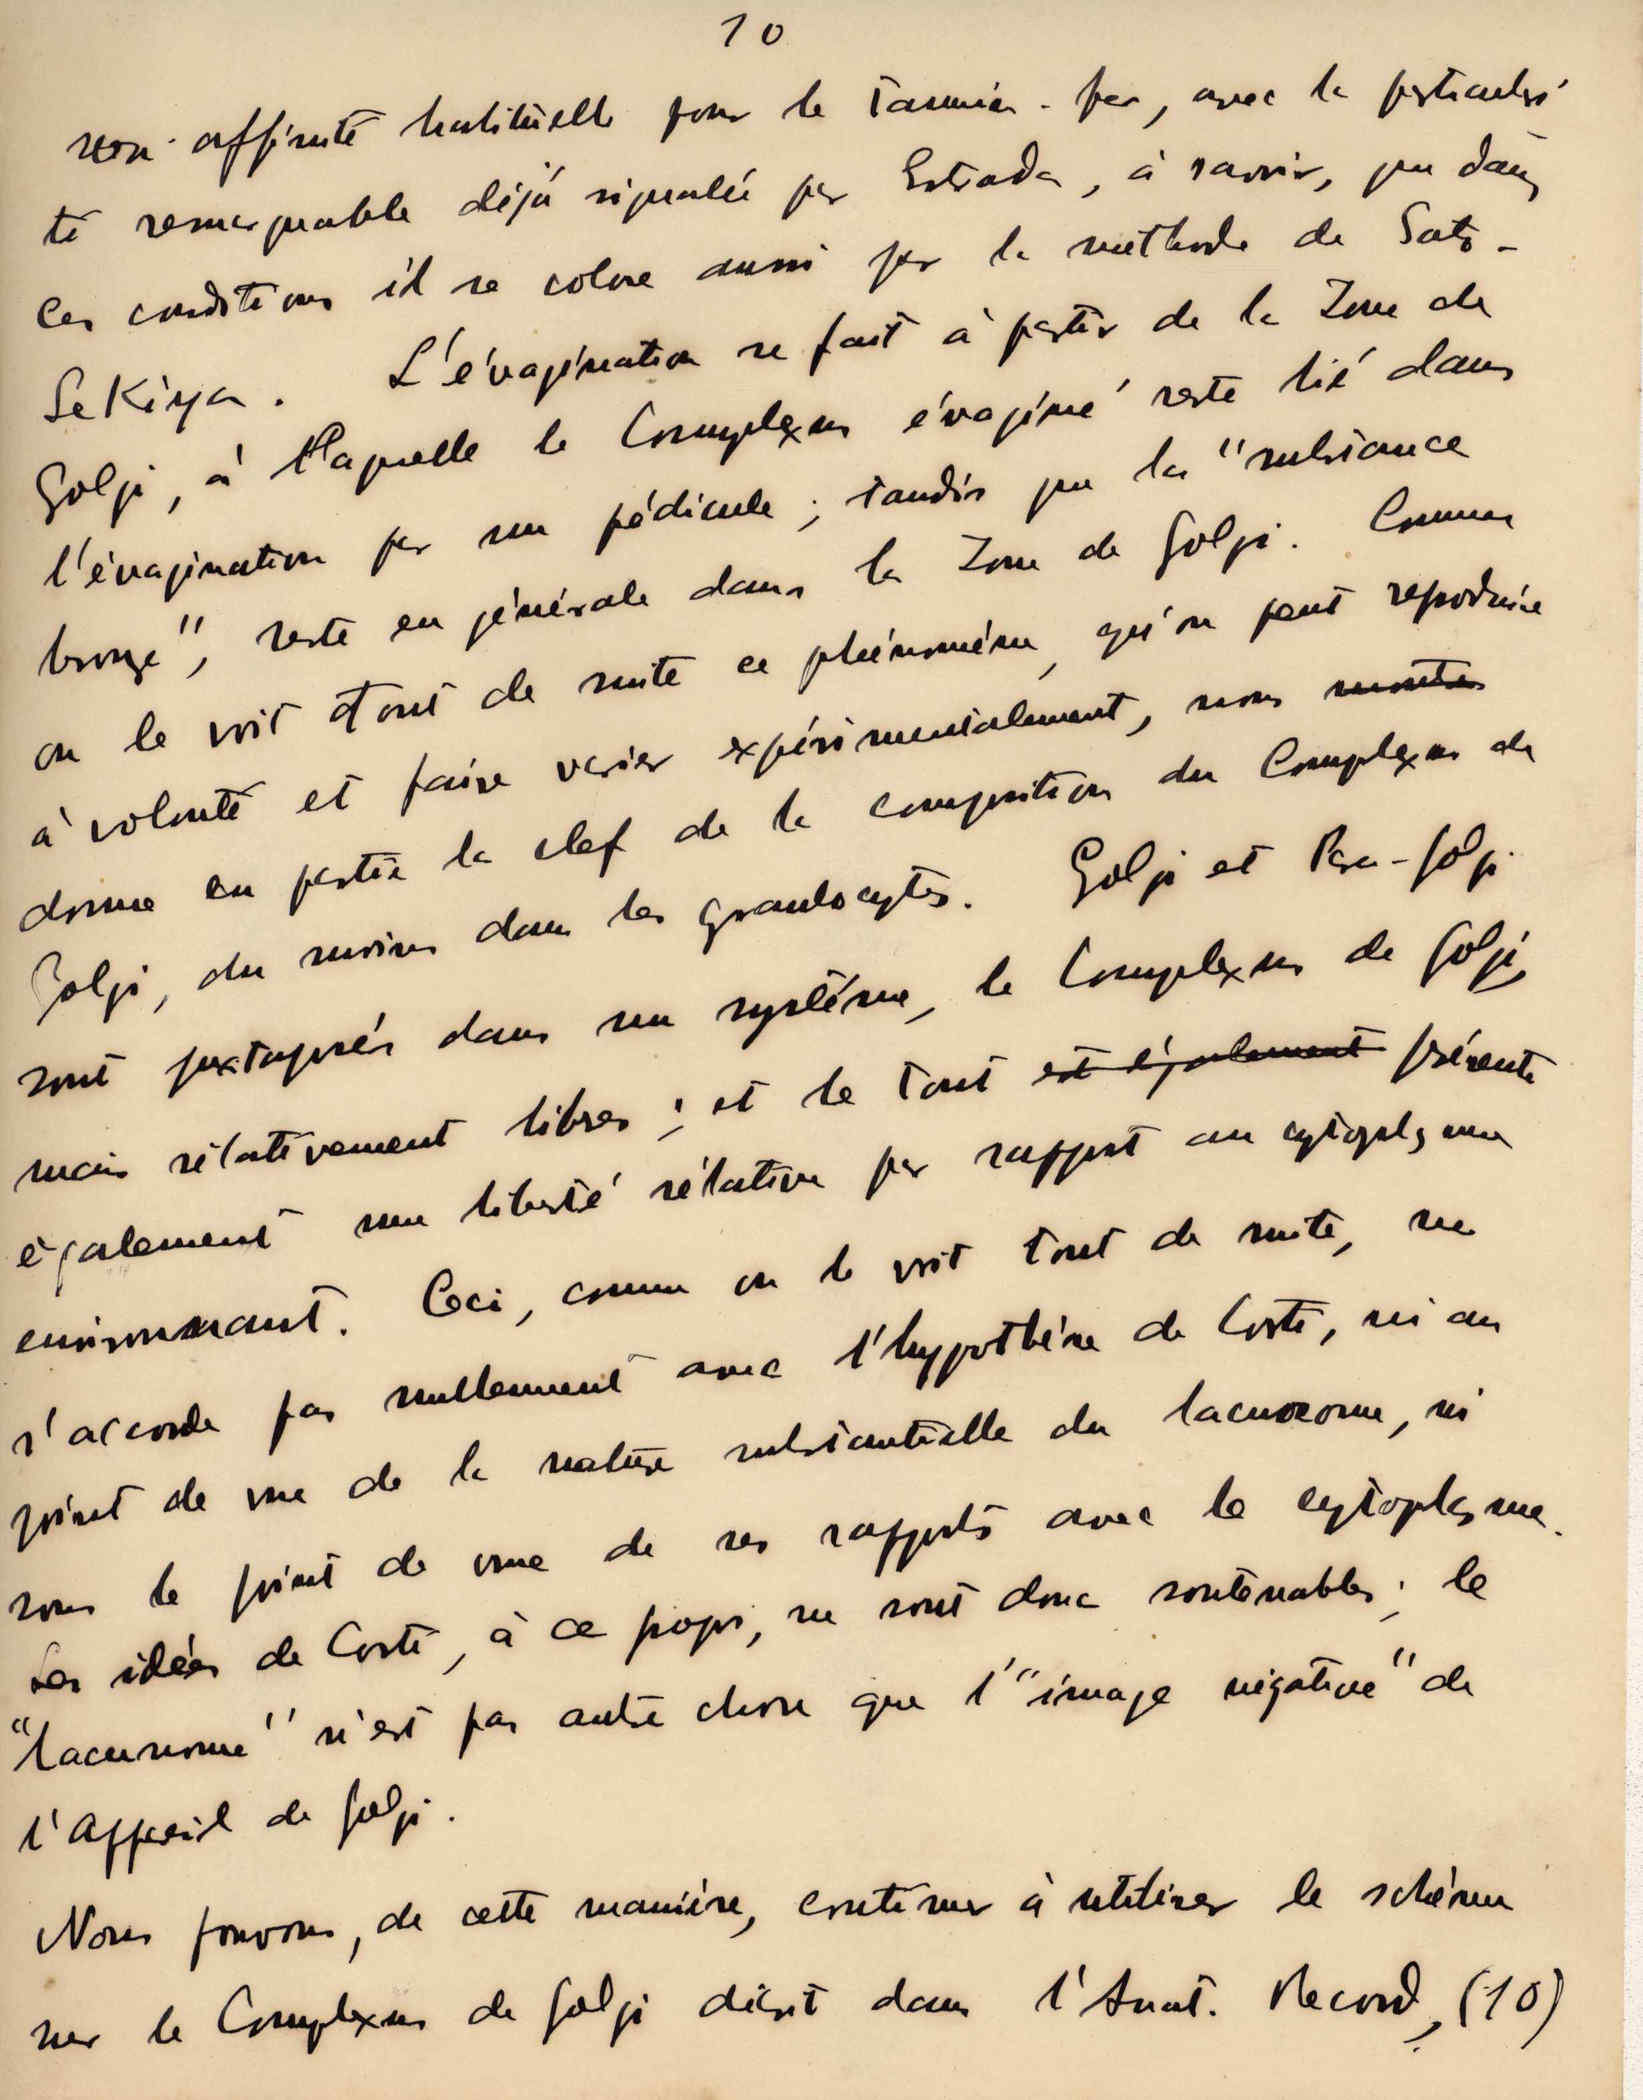 10
son affinité habituelle pour le tannin-fer, avec la particulari
té remarquable déjà signalée par Estrada, à savoir, que dans
ces conditions il se colore aussi par la méthode de Sato-
Sekiya. L'évagination se fait à partir de la Zone de
Golgi, à laquelle le Complexus évaginé reste lié dans
l'évagination par un pédicule; tandis que la "substance
bronze", reste en générale dans la Zone de Golgi. Comme
on le voit tout de suite ce phénomène, qu'on peut reproduire
à volonté et faire varier expérimentalement, nous montre
donne en partie la clef de la composition du Complexus de
Golgi, du moins dans les granulocytes. Golgi et Para-Golgi
sont juxtaposés dans un système, le Complexus de Golgi,
mais rélativement libres; et le tout est également présente
également une liberté rélative par rapport au cytoplasme
environnant. Ceci, comme on le voit tout de suite, ne
s'accorde pas nullement avec l'hypothèse de Corti, ni au
point de vue de la nature substantielle du lacunome, ni
sous le point de vue de ses rapports avec le cytoplasme.
Les idées de Corti, à ce propos, ne sont donc soutenables; le
"lacunome" n'est pas autre chose que l'"image négative" de
l'Appareil de Golgi.
Nous pouvons, de cette manière, continuer à utiliser le schéma
sur le Complexus de Golgi décrit dans l'Anat. Record, (10)